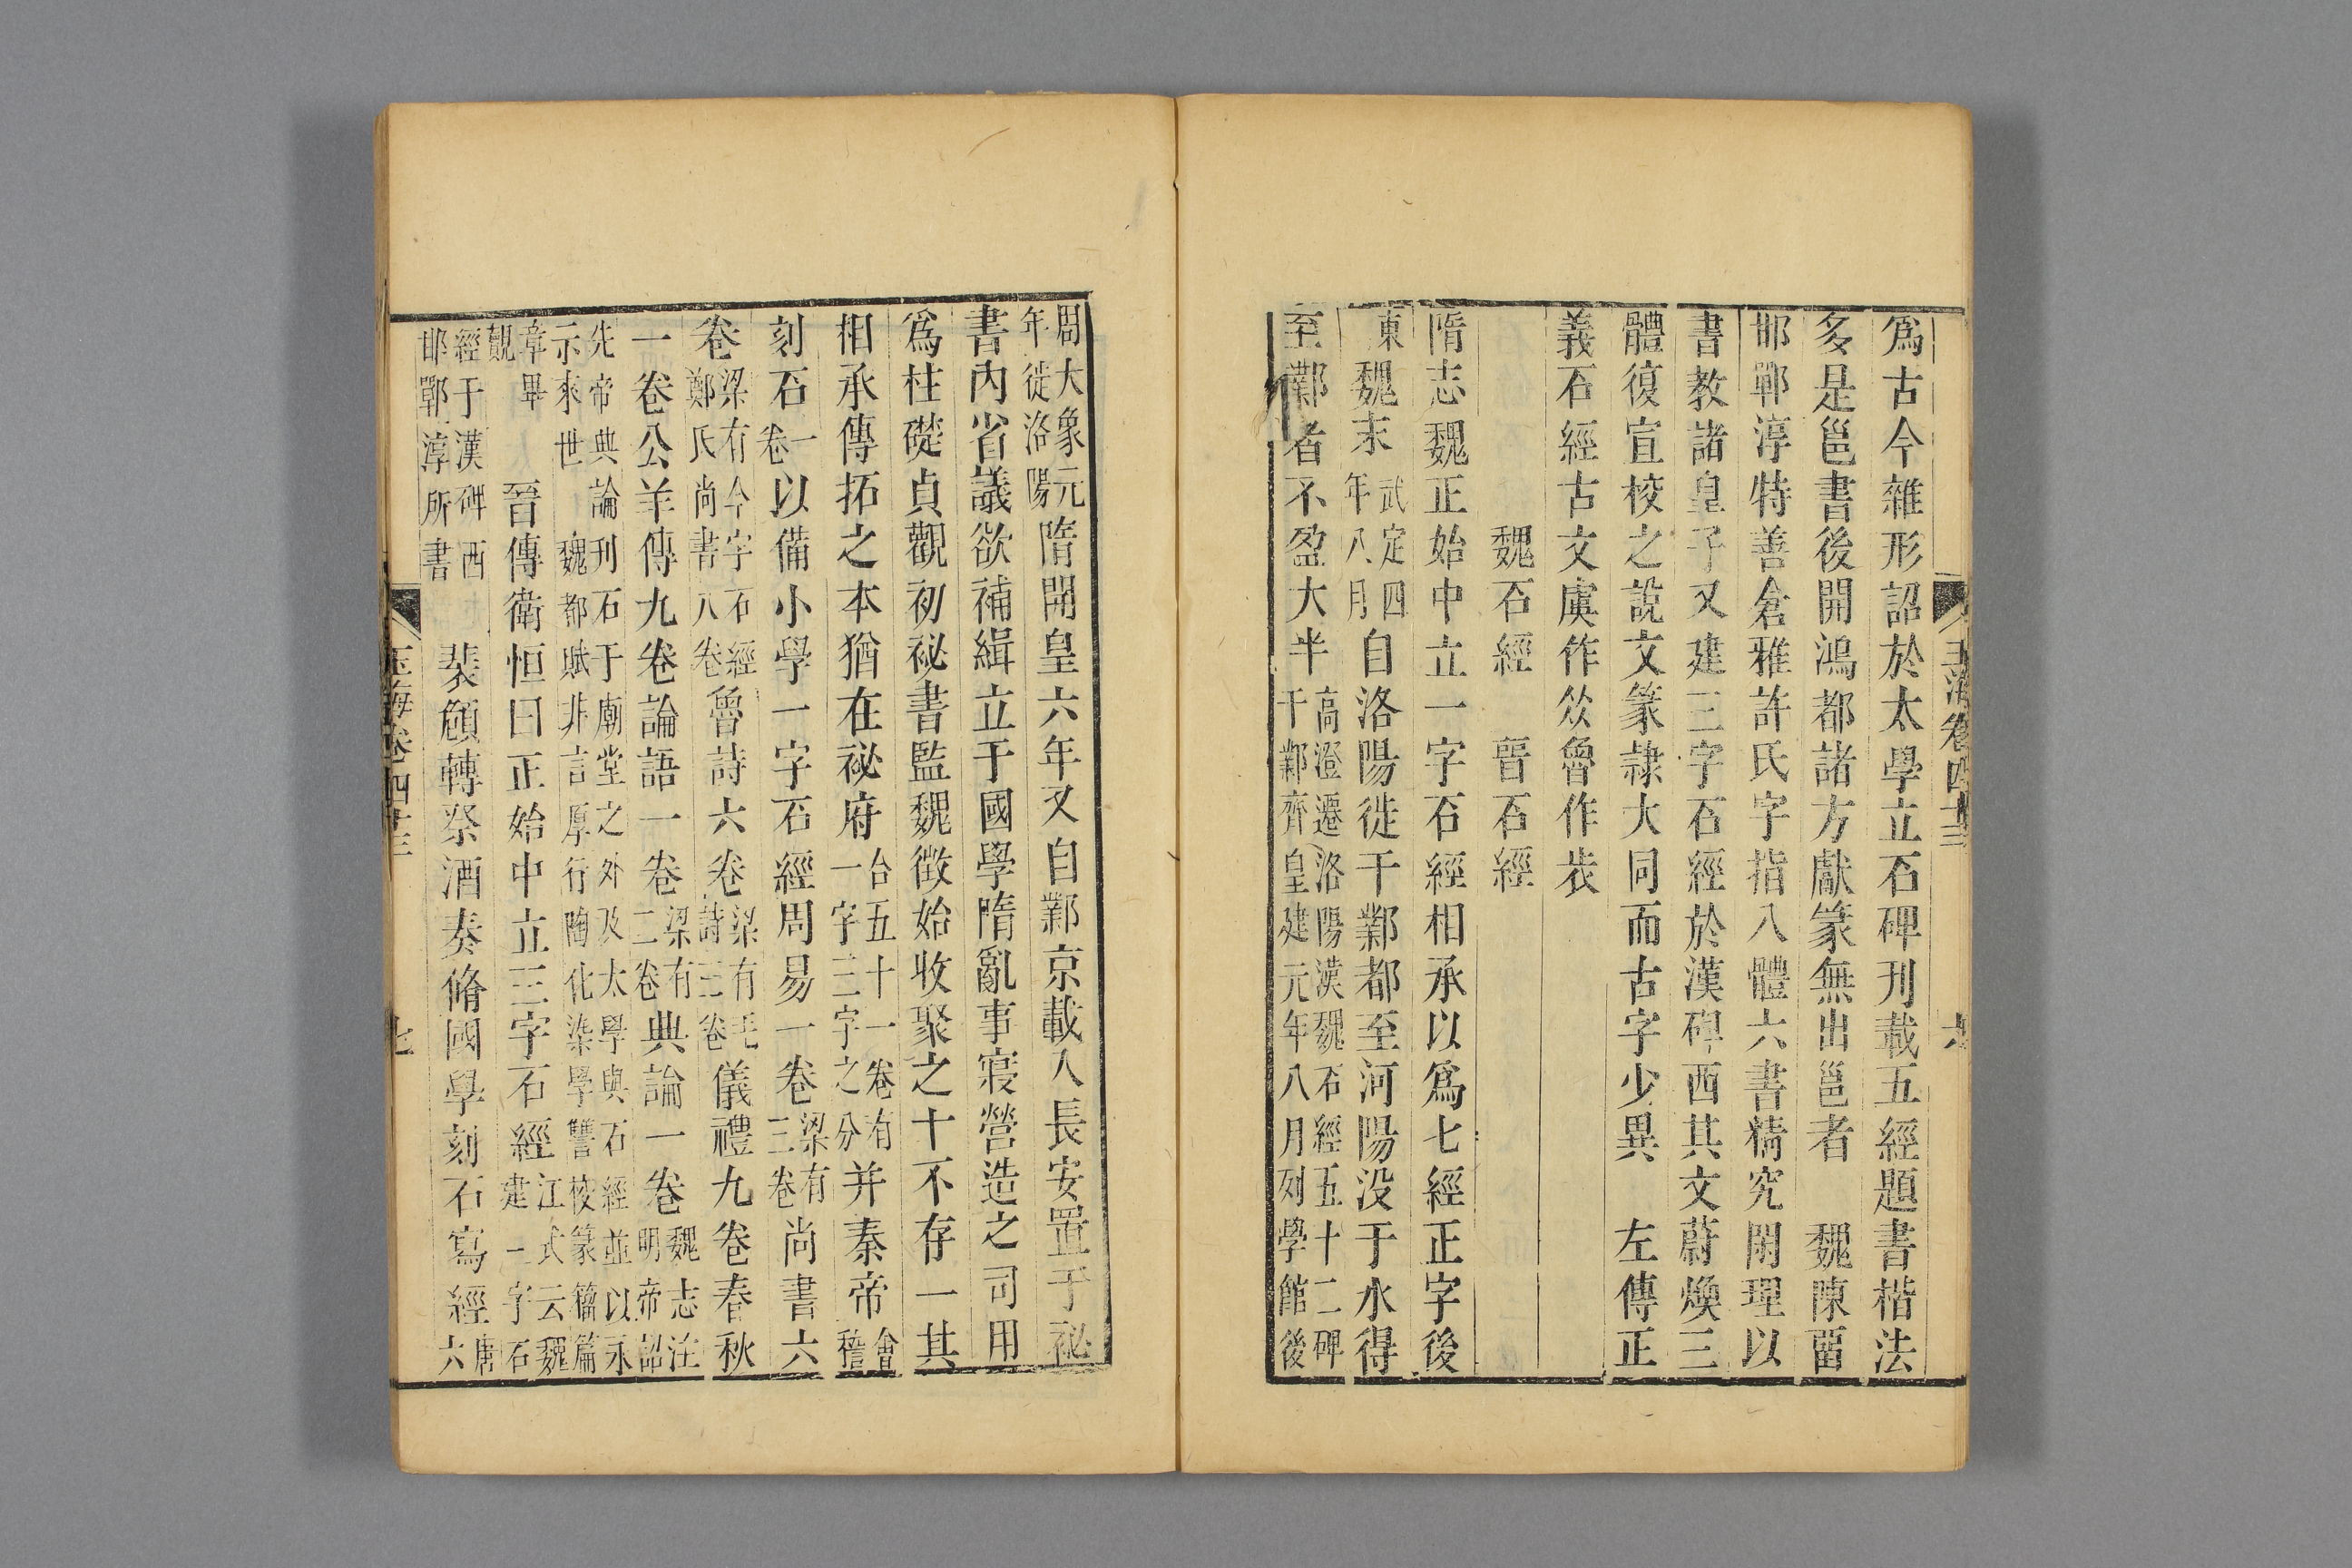 玉海卷四十三 六
爲古今雜形詔於太學立石碑刊載五經題書楷法
多是邕書後開鴻都諸方獻篆無出邕者 魏陳畱
邯鄲淳特善倉雅許氏字指八體六書精究閑理以
書教諸皇子又建三字石經於漢碑西其文蔚煥三
體復宣校之說文篆隷大同而古字少異 左傳正
義石經古文虞作㕕魯作𣥐
魏石經 晉石經
隋志魏正始中立一字石經相承以爲七經正字後
東魏末武定四年八月自洛陽徙于鄴都至河陽没于水得
至鄴者不盈大半高澄遷洛陽漢魏石經五十二碑于鄴齊皇建元年八月列學館後
周大象元年徙洛陽隋開皇六年又自鄴京載入長安置于祕
書内省議欲補緝立于國學隋亂事寢營造之司用
爲柱礎貞觀初祕書監魏徵始收聚之十不存一其
相承傳拓之本猶在祕府台五十一卷有一字三字之分并秦帝會稽
刻石一卷以備小學一字石經周易一卷梁有三卷尚書六
卷梁有今字石經鄭氏尚書八卷魯詩六卷梁有毛詩三卷儀禮九卷春秋
一卷公羊傳九卷論語一卷梁有二卷典論一卷魏志注明帝詔
先帝典論刊石于廟堂之外及太學與石經並以永示來世 魏都賦非言厚行陶化染學讐校篆籀篇
章畢覿 晉傳衛恒曰正始中立三字石經江式云魏建三字石
經于漢碑西邯鄲淳所書 裴頠轉祭酒奏脩國學刻石寫經唐六
玉海卷四十三 七